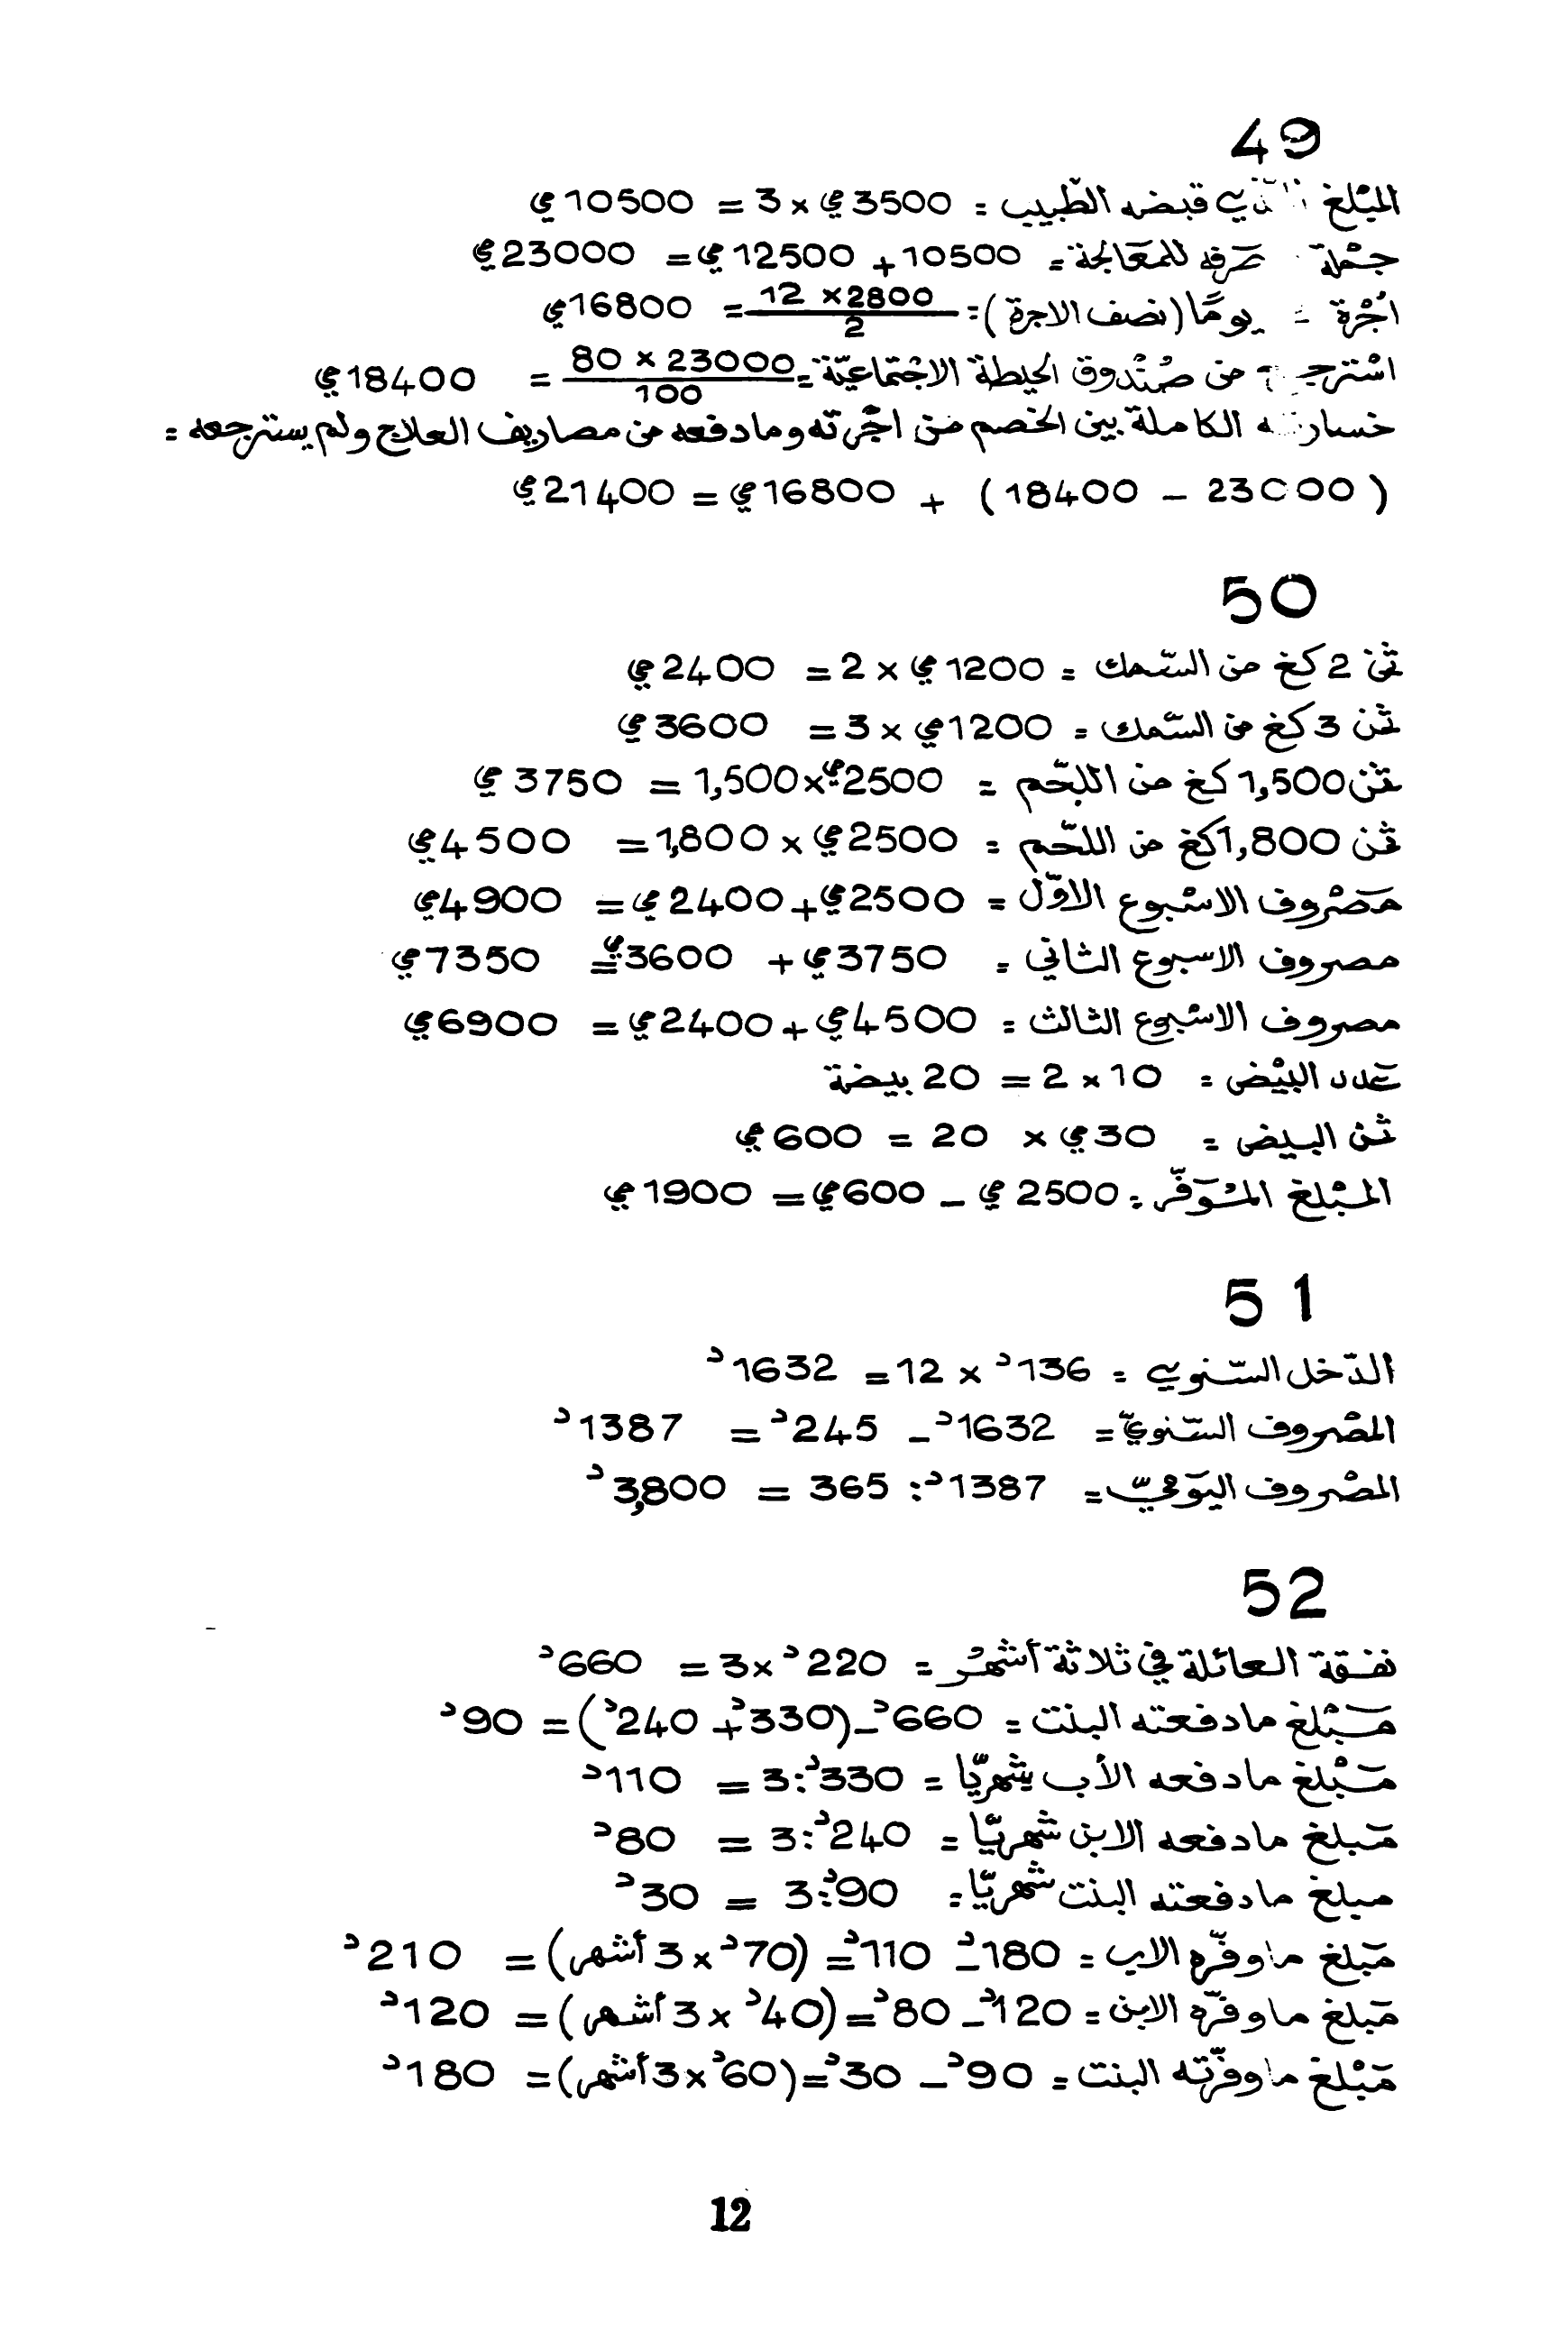 49
المبْلغ الّذي قبضه الطّبيب = 3500ي × 3 = 10500ي
جمْلة صرفه للمعَالجة = 10500 + 12500ي = 23000ي
أجْرة يومًا (نصف الاجرة) = 12 × 2800 / 2 = 16800ي
اسْترجع من صنْدوق الحيطة الاجْتماعيّة = 80 × 23000 / 100 = 18400ي
خسارته الكاملة بين الخصم من أجْرته وما دفعه من مصاريف العلاج ولم يسترجعه =
(23000 – 18400) + 16800ي = 21400ي
50
ثمن 2 كغ من السّمك = 1200ي × 2 = 2400ي
ثمن 3 كغ من السّمك = 1200ي × 3 = 3600ي
ثمن 1,500 كغ من اللّحم = 2500ي × 1,500 = 3750ي
ثمن 1,800 كغ من اللّحم = 2500ي × 1,800 = 4500ي
مَصْروف الاسْبوع الاوّل = 2500ي + 2400ي = 4900ي
مصروف الاسبوع الثاني = 3750ي + 3600ي = 7350ي
مصروف الاسْبوع الثالث = 4500ي + 2400ي = 6900ي
عَدد البيْض = 10 × 2 = 20 بيضة
ثمن البيض = 30ي × 20 = 600ي
المبْلغ المُوَفّر = 2500ي – 600ي = 1900ي
51
الدّخل السّنوي = 136د × 12 = 1632د
المصْروف السّنويّ = 1632د – 245د = 1387د
المصْروف اليَوْميّ = 1387د : 365 = 3,800د
52
نفقة العائلة في ثلاثة أشهُر = 220د × 3 = 660د
مَبْلغ ما دفعته البنت = 660د – (330د + 240د) = 90د
مَبْلغ ما دفعه الأب شهْريّا = 330د : 3 = 110د
مَبلغ ما دفعه الابن شهْريّا = 240د : 3 = 80د
مبلغ ما دفعته البنت شهْريّا = 90د : 3 = 30د
مَبلغ ما وفّره الاب = 180د – 110د = (70د × 3 أشهر) = 210د
مَبلغ ما وفّره الابن = 120د – 80د = (40د × 3 أشهر) = 120د
مَبْلغ ما وفّرته البنت = 90د – 30د = (60د × 3 أشهر) = 180د
12